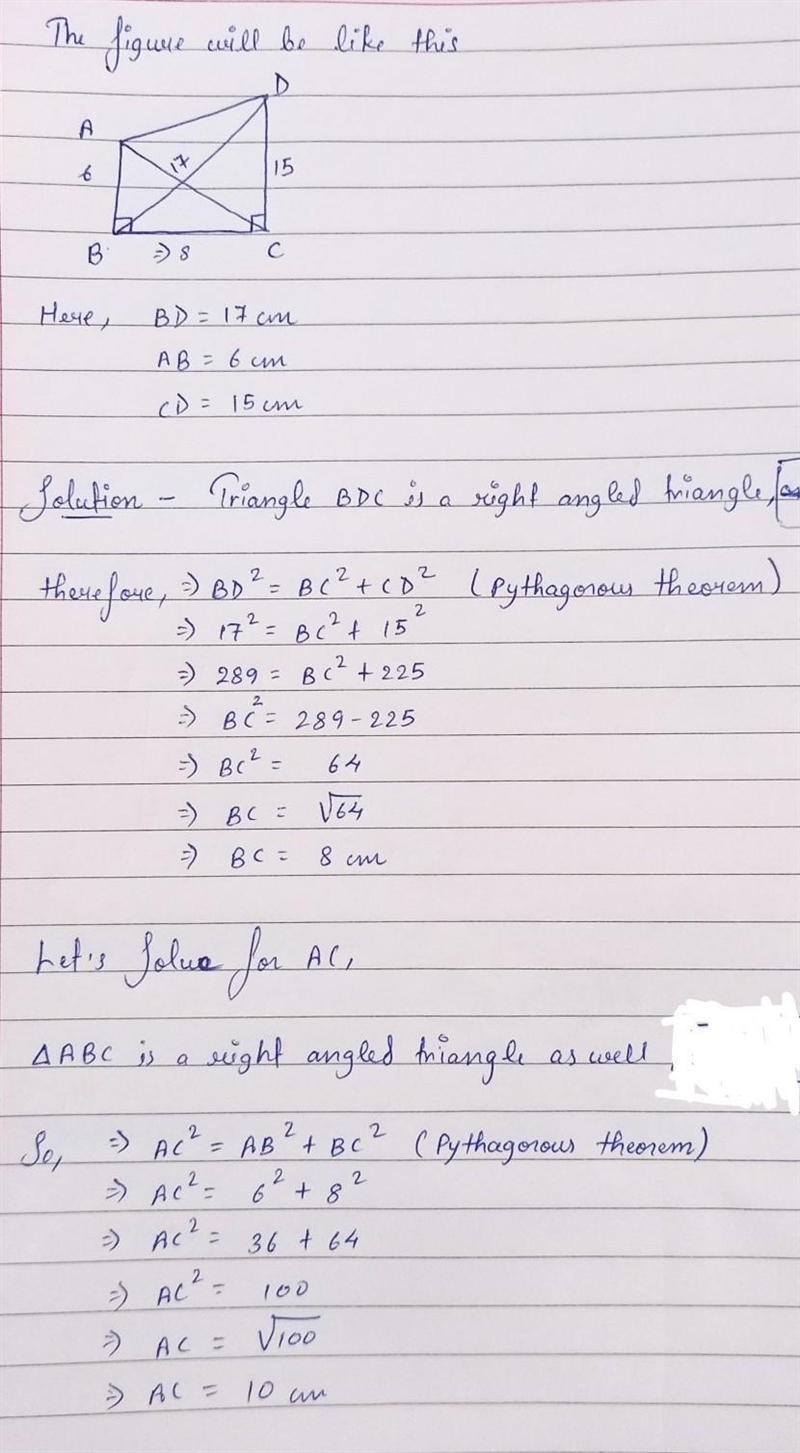 The figure will be like this
D
A
6
17
15
B
⇒ 8
C
Here, BD = 17 cm
AB = 6 cm
CD = 15 cm
Solution - Triangle BDC is a right angled triangle,
therefore, ⇒ BD² = BC² + CD² (Pythagorous theorem)
⇒ 17² = BC² + 15²
⇒ 289 = BC² + 225
⇒ BC² = 289 - 225
⇒ BC² = 64
⇒ BC = √64
⇒ BC = 8 cm
Let's Solve for AC,
△ABC is a right angled triangle as well,
So, ⇒ AC² = AB² + BC² (Pythagorous theorem)
⇒ AC² = 6² + 8²
⇒ AC² = 36 + 64
⇒ AC² = 100
⇒ AC = √100
⇒ AC = 10 cm